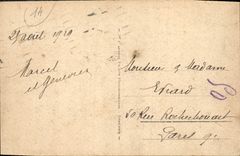 1A
Avril 1919
Marcel
et Geneviève
Monsieur & Madame
Evrard
50 Rue Rochechouart
Paris 9e